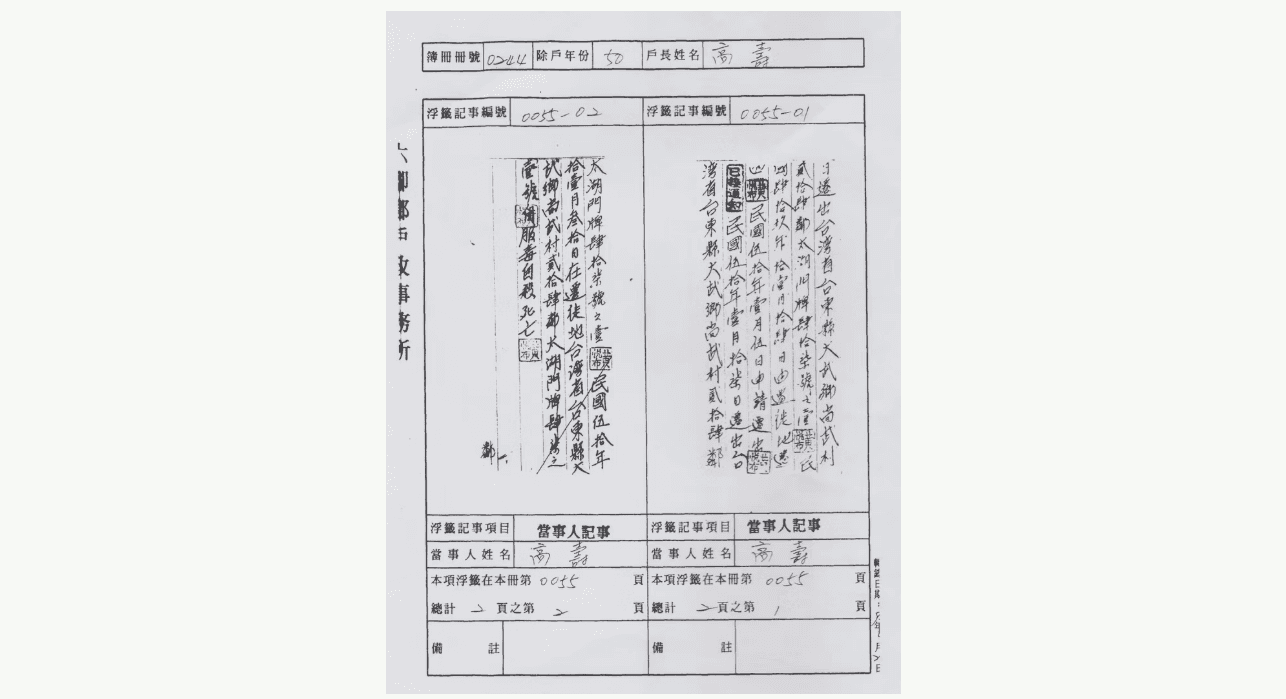 簿冊冊號 0244 除戶年份 50 戶長姓名 高壽
浮籤記事編號 0055-01
日遷出台灣省台東縣大武鄉尚武村
貳拾肆鄰太湖門牌肆拾柒號之壹 民
國肆拾玖年拾壹月拾肆日由遷徙地
民國伍拾年壹月伍日申請遷出
民國伍拾年壹月拾柒日遷出台
灣省台東縣大武鄉尚武村貳拾肆鄰
浮籤記事項目 當事人記事
當事人姓名 高壽
本項浮籤在本冊第 0055 頁
總計 2 頁之第 1 頁
備註
浮籤記事編號 0055-02
太湖門牌肆拾柒號之壹 民國伍拾年
拾壹月叁拾日在遷徙地台灣省台東縣大
武鄉尚武村貳拾肆鄰太湖門牌肆柒之
壹號 服毒自殺死亡
鄰
浮籤記事項目 當事人記事
當事人姓名 高壽
本項浮籤在本冊第 0055 頁
總計 2 頁之第 2 頁
備註
政事務所